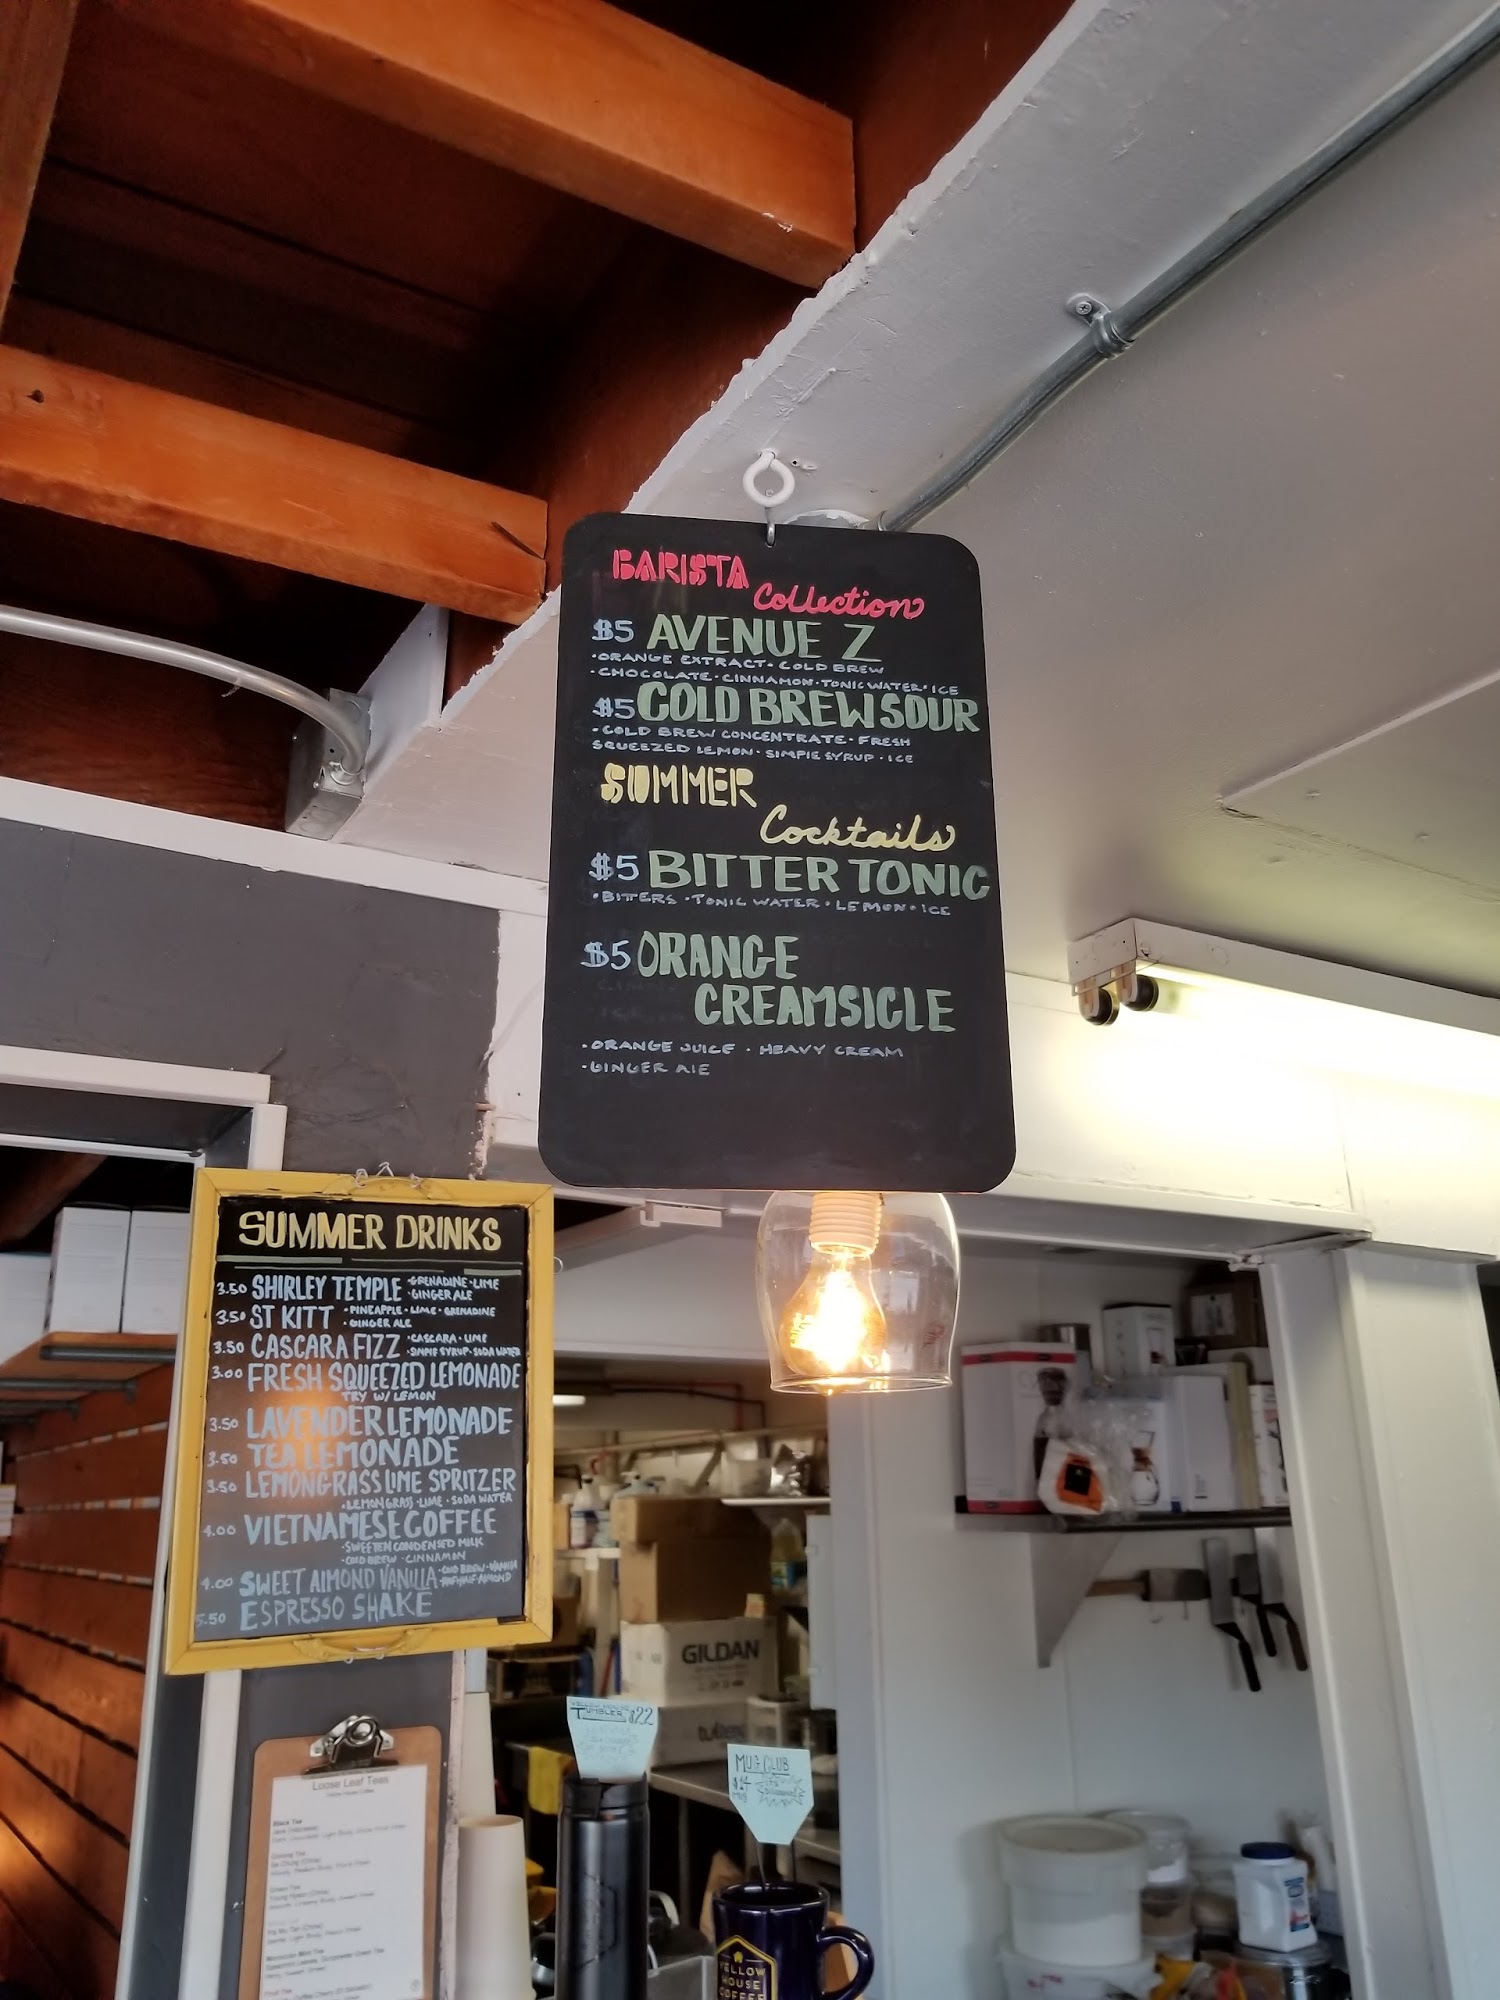 BARISTA
Collection
$5 AVENUE Z
·ORANGE EXTRACT· COLD BREW
·CHOCOLATE·CINNAMON·TONIC WATER·ICE
$5 COLD BREW SOUR
·COLD BREW CONCENTRATE· FRESH
SQUEEZED LEMON· SIMPLE SYRUP · ICE
SUMMER
Cocktails
$5 BITTER TONIC
·BITTERS ·TONIC WATER·LEMON·ICE
$5 ORANGE
CREAMSICLE
·ORANGE JUICE · HEAVY CREAM
·GINGER ALE
SUMMER DRINKS
3.50 SHIRLEY TEMPLE ·GRENADINE·LIME
·GINGER ALE
3.50 ST KITT ·PINEAPPLE·LIME·GRENADINE
·GINGER ALE
3.50 CASCARA FIZZ ·CASCARA·LIME
·SIMPLE SYRUP·SODA WATER
3.00 FRESH SQUEEZED LEMONADE
TRY W/ LEMON
3.50 LAVENDER LEMONADE
3.50 TEA LEMONADE
3.50 LEMONGRASS LIME SPRITZER
·LEMONGRASS·LIME·SODA WATER
4.00 VIETNAMESE COFFEE
·SWEETEN CONDENSED MILK
·COLD BREW ·CINNAMON
4.00 SWEET ALMOND VANILLA ·COLD BREW·VANILLA
·HALF+HALF·ALMOND
5.50 ESPRESSO SHAKE
GILDAN
TUMBLER $22
MUG CLUB
Loose Leaf Teas
Yellow House Coffee
Black Tea
Green Tea
Moroccan Mint Tea
Fruit Tea
YELLOW
HOUSE
COFFEE